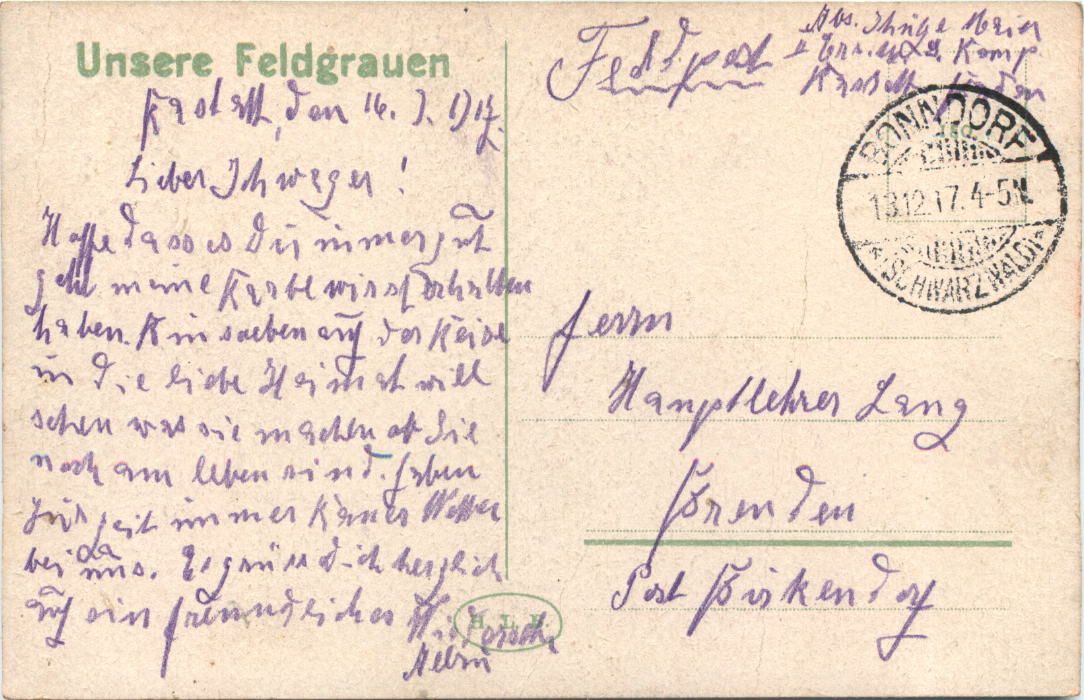 Unsere Feldgrauen
Rastatt, den 16. 1917.
Lieber Schwager!
Hoffe dass es Dir immer gut
geht meine Karte wirst erhalten
haben. Bin soeben auf der Reise
in die liebe Heimat will
sehen was sie machen ob Sie
noch am leben sind. Haben
zeit immer Wetter
bei uns. Es grüsst dich herzlich
auf ein freundliches Wiedersehn
Feldpost
Abs. Meier
Komp.
Rastatt Baden
BONNDORF
13.12.17. 4-5N.
*(SCHWARZWALD)*
Herrn
Hauptlehrer Lang
Brenden
Post Birkendorf
H L B